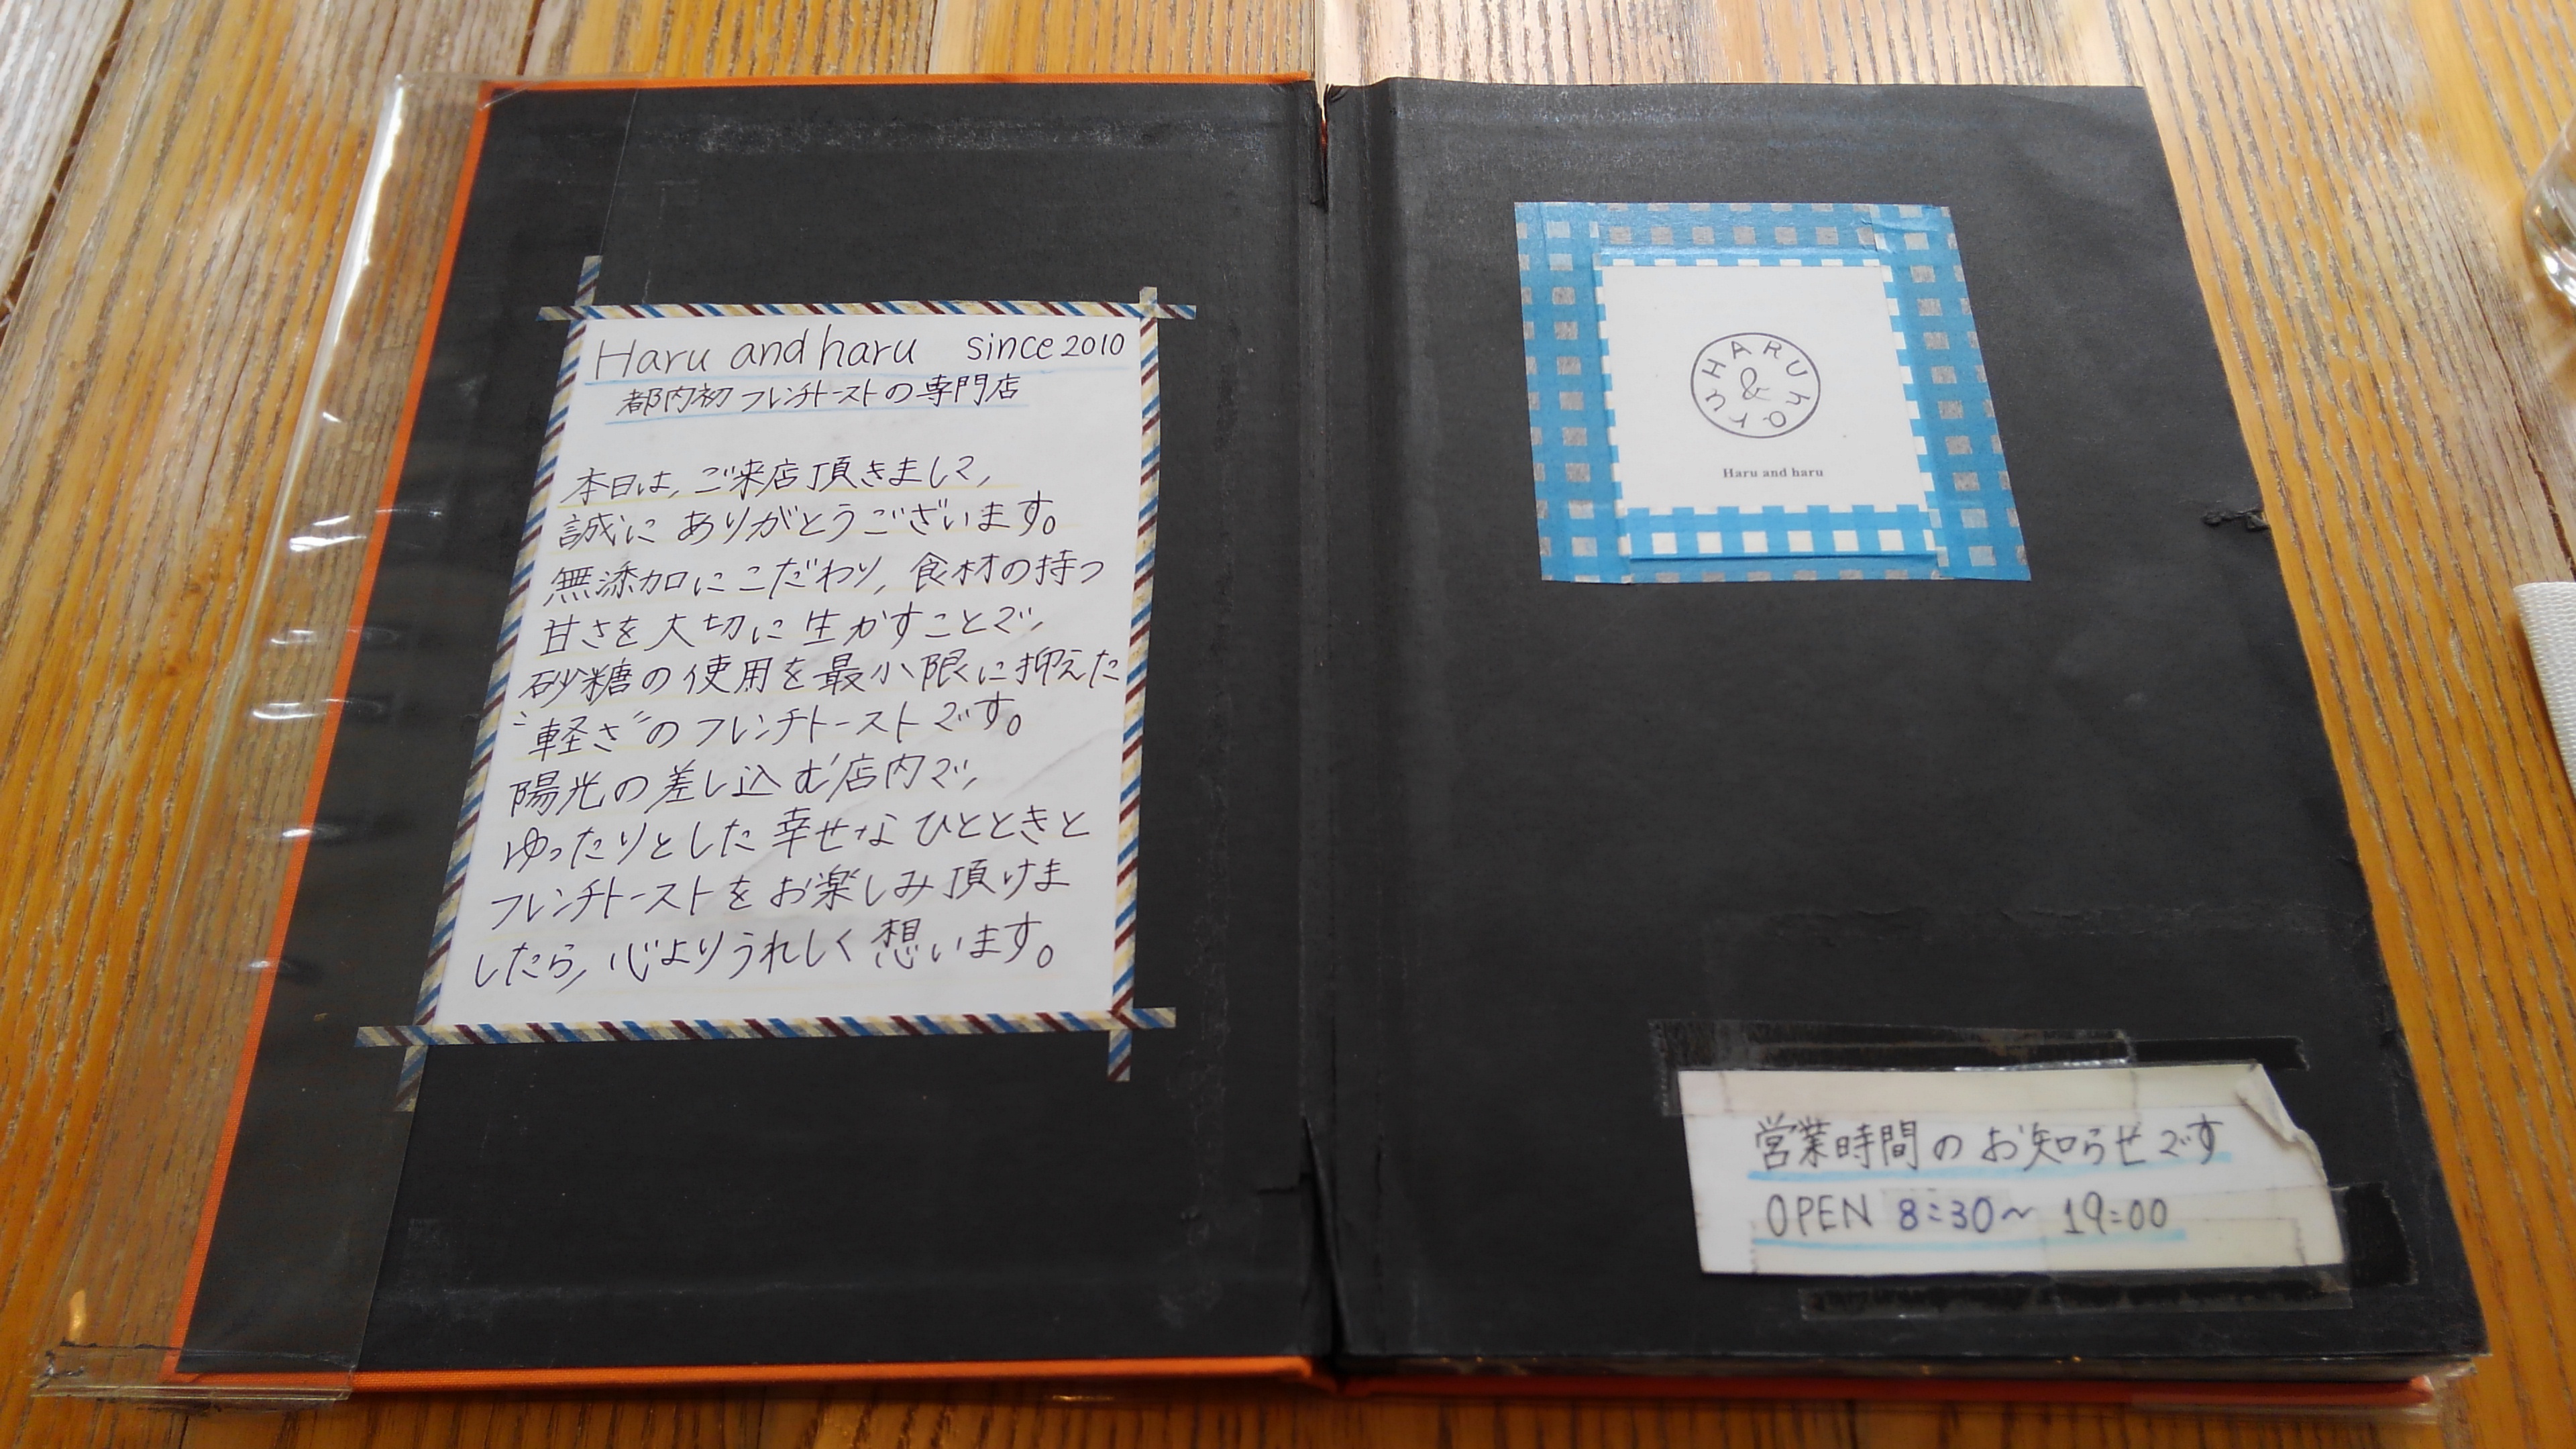 Haru and haru since 2010
都内初フレンチトーストの専門店
本日は、ご来店頂きまして、
誠にありがとうございます。
無添加にこだわり、食材の持つ
甘さを大切に生かすことで、
砂糖の使用を最小限に抑えた
"軽さ"のフレンチトーストです。
陽光の差し込む店内で、
ゆったりとした幸せなひとときと
フレンチトーストをお楽しみ頂けま
したら、心よりうれしく想います。
HARU & haru
Haru and haru
営業時間のお知らせです
OPEN 8:30〜 19:00